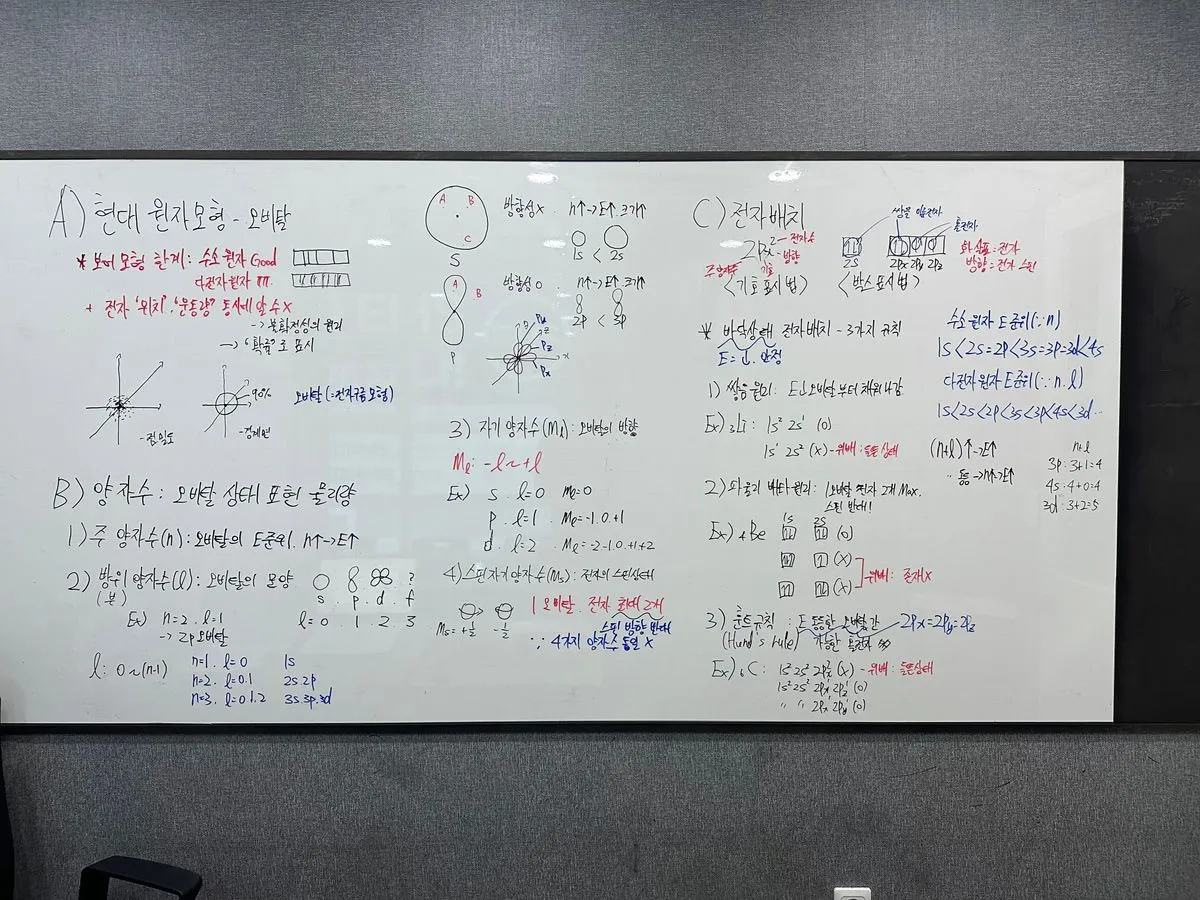 A) 현대 원자모형 - 오비탈
* 보어 모형 한계: 수소 원자 Good
다전자 원자 ㅠㅠ
+ 전자 '위치', '운동량' 동시에 알 수 X
-> 불확정성의 원리
-> '확률'로 표시
- 점밀도
90%
- 경계면
오비탈 (=전자구름 모형)
B) 양자수 : 오비탈 상태 표현 물리량
1) 주 양자수(n) : 오비탈의 E준위. n↑→E↑
2) 방위 양자수(l) : 오비탈의 모양
(부)
?
s . p . d . f
l = 0 . 1 . 2 . 3
Ex) n=2. l=1
→ 2p 오비탈
l : 0 ~ (n-1)
n=1. l=0 1s
n=2. l=0.1 2s 2p
n=3. l=0.1.2 3s 3p. 3d
A B
C
S
방향성 X . n↑→E↑ 크기↑
1s < 2s
A
B
P
방향성 O . n↑→E↑ 크기↑
2p < 3p
Py
z
Pz
x
Px
3) 자기 양자수(Ml) : 오비탈의 방향
Ml : -l ~ +l
Ex) s . l=0 Ml=0
p . l=1 . Ml=-1.0.+1
d . l=2 . Ml=-2-1.0.+1+2
4) 스핀자기양자수(Ms) : 전자의 스핀상태
Ms = +1/2 -1/2
1 오비탈. 전자 최대 2개
스핀 방향 반대
∵ 4가지 양자수 동일 X
C) 전자배치
2Px²
전자수
방향
주양자수
기호
<기호 표시법>
쌍을 이룬 전자
홀전자
2S
2Px 2Py 2Pz
<박스 표시법>
화살표 = 전자
방향 = 전자 스핀
* 바닥상태 전자배치 - 3가지 규칙
E=↓. 안정
1) 쌓음 원리 : E↓오비탈부터 채워나감
Ex) ₃Li : 1s² 2s¹ (O)
1s¹ 2s² (X) - 위배 : 들뜬상태
2) 파울리 배타 원리 : 1오비탈 전자 2개 Max.
스핀 반대!
1s 2s
Ex) ₄Be (O)
(X)
(X)
위배 : 존재 X
3) 훈트 규칙 : E 동등한 오비탈 간
(Hund's rule) 가능한 홀전자 多
2Px = 2Py = 2Pz
Ex) ₆C : 1s² 2s² 2Px² (X) - 위배 : 들뜬상태
1s² 2s² 2Px¹ 2Pz¹ (O)
〃 〃 2Px¹ 2Py¹ (O)
수소 원자 E준위 (∵ n)
1s < 2s = 2p < 3s = 3p = 3d < 4s
다전자 원자 E준위 (∵ n. l)
1s < 2s < 2p < 3s < 3p < 4s < 3d ...
(n+l)↑→E↑
〃 동 → n↑→E↑
n+l
3p : 3+1=4
4s : 4+0=4
3d : 3+2=5